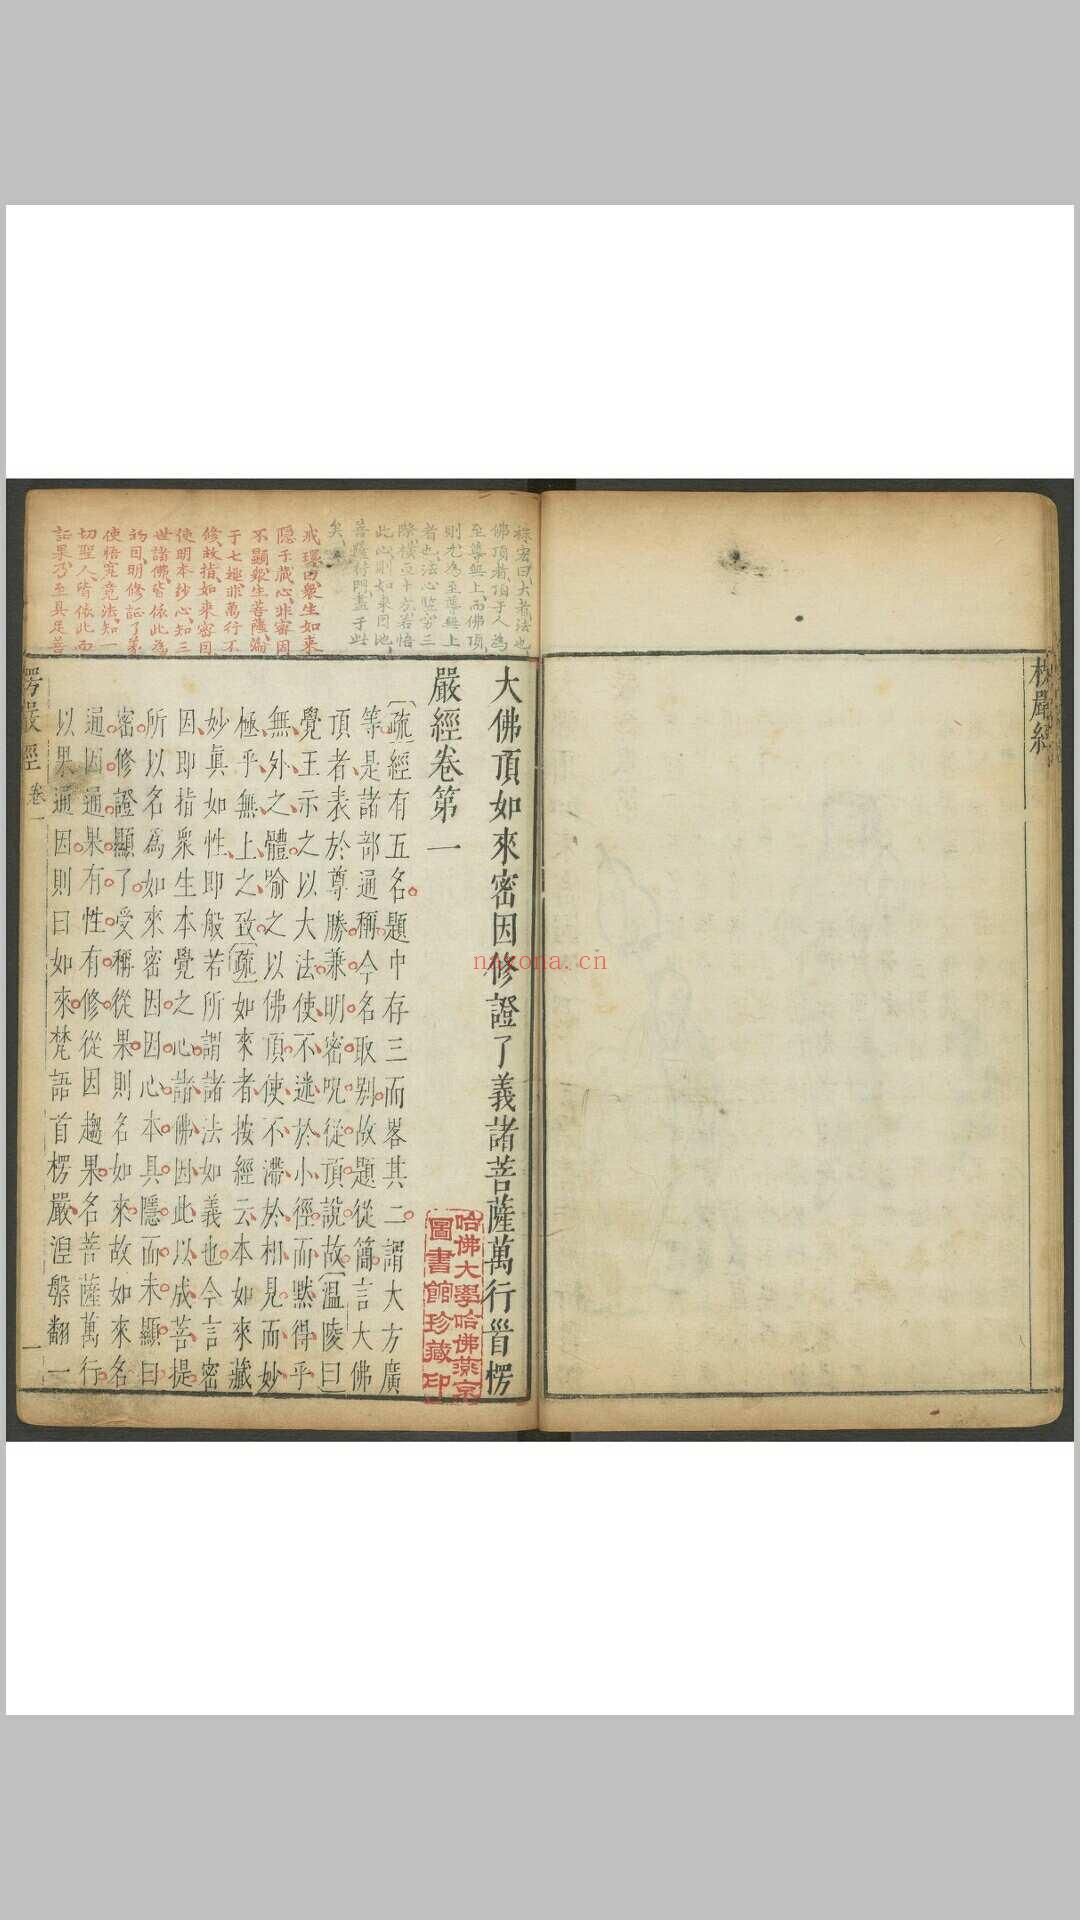 大佛頂如來密因修證了義諸菩薩萬行首楞
嚴經卷第一
疏經有五名題中存三而畧其二謂大方廣
等是諸部通稱今名取別故題從簡言大佛
頂者表於尊勝兼明密呪從頂說故溫陵曰
覺王示之以大法使不迷於小徑而黙得乎
無外之體喻之以佛頂使不滯於相見而妙
極乎無上之致疏如來者按經云本如來藏
妙眞如性即般若所謂諸法如義也今言密
因即指衆生本覺之心諸佛因此以成菩提
所以名爲如來密因因心本具隱而未顯曰
密修證顯了受稱從果則名如來故如來名
通因通果有性有修從因趨果名菩薩萬行
以果通因則曰如來梵語首楞嚴涅槃翻一
楞嚴經 卷一
一
袾宏曰大者法也
佛頂者頂于人為
至尊無上而佛頂
則尤為至尊無上
者也法心豎窮三
際橫亘十方若悟
此心則如來因地
菩薩行門盡于此
矣
戒環曰衆生如來
隱于藏心非密因
不顯衆生菩薩淪
于七趣非萬行不
修故指如來密因
使明本妙心知三
世諸佛皆依此為
初因明修証了義
使悟究竟法知一
切聖人皆依此而
証果乃至具足菩
哈佛大學哈佛燕京
圖書館珍藏印
naxona.cn
楞嚴經